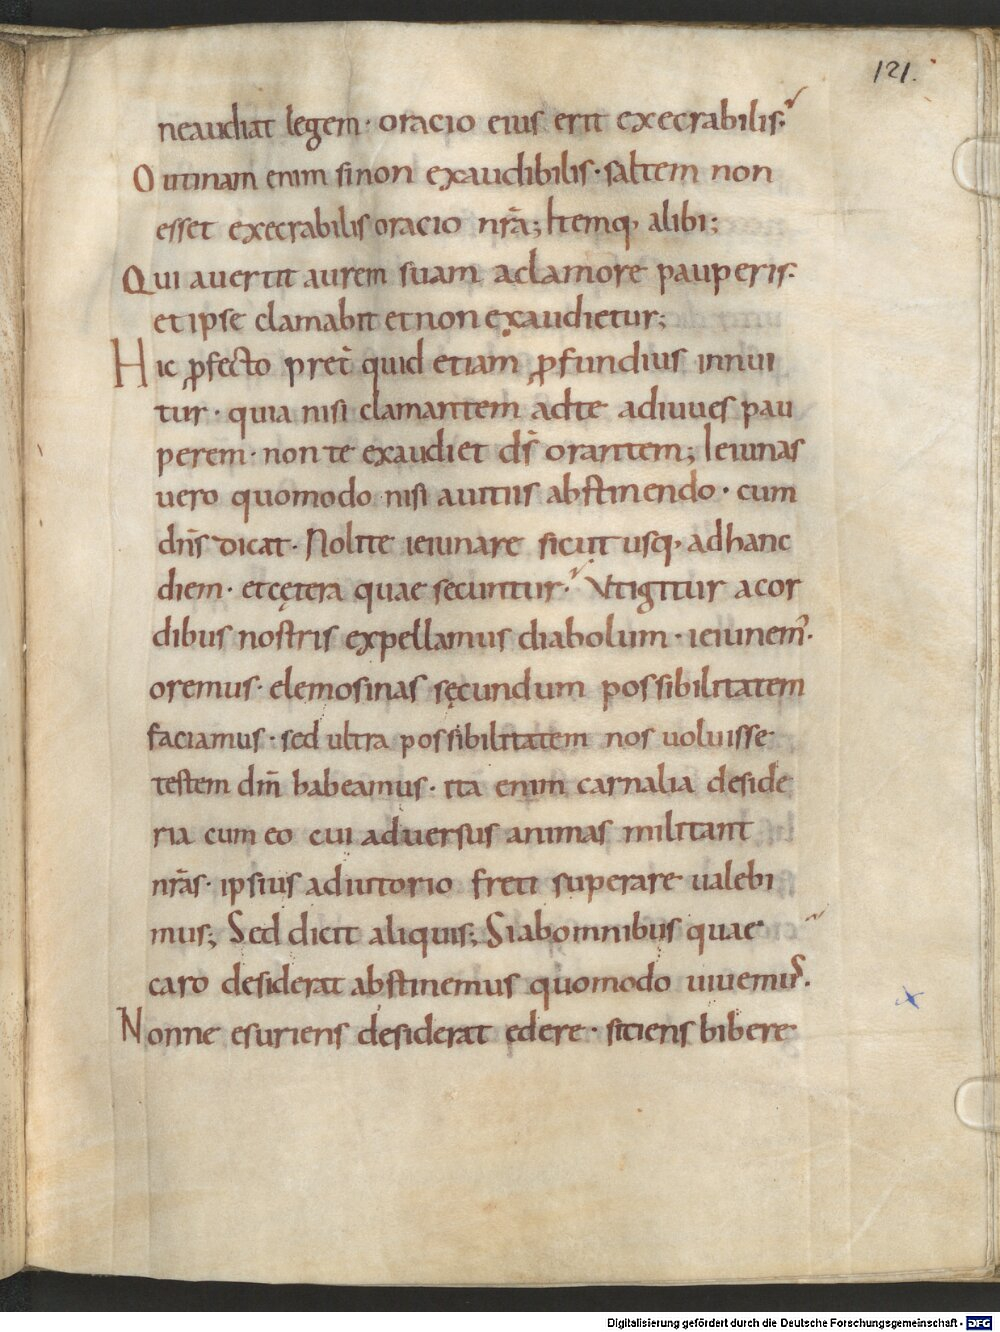 121.
neaudiat legem· oracio eius erit execrabilis;
O utinam enim sinon exaudibilis· saltem non
esset execrabilis oracio nr̄a; Itemq; alibi;
Qui avertit aurem suam aclamore pauperis·
et ipse clamabit et non exaudietur;
Hic ꝓfecto pret̄ quid etiam ꝓfundius innui
tur· quia nisi clamantem adte adiuues pau
perem· non te exaudiet ds̄ orantem; Ieiunas
vero quomodo nisi auitiis abstinendo· cum
dn̄s dicat· Nolite ieiunare sicut usq; adhanc
diem· et cętera quae secuntur· Vt igitur acor
dibus nostris expellamus diabolum· ieiunem᾽·
oremus· elemosinas sęcundum possibilitatem
faciamus· sed ultra possibilitatem nos uoluisse
testem dm̄ habeamus· ita enim carnalia deside
ria cum eo cui adversus animas militant
nr̄as· ipsius adiutorio freti superare ualebi
mus; Sed dicit aliquis; Si ab omnibus quae
caro desiderat abstinemus quomodo uiuemus·
Nonne esuriens desiderat edere· sitiens bibere
Digitalisierung gefördert durch die Deutsche Forschungsgemeinschaft - DFG